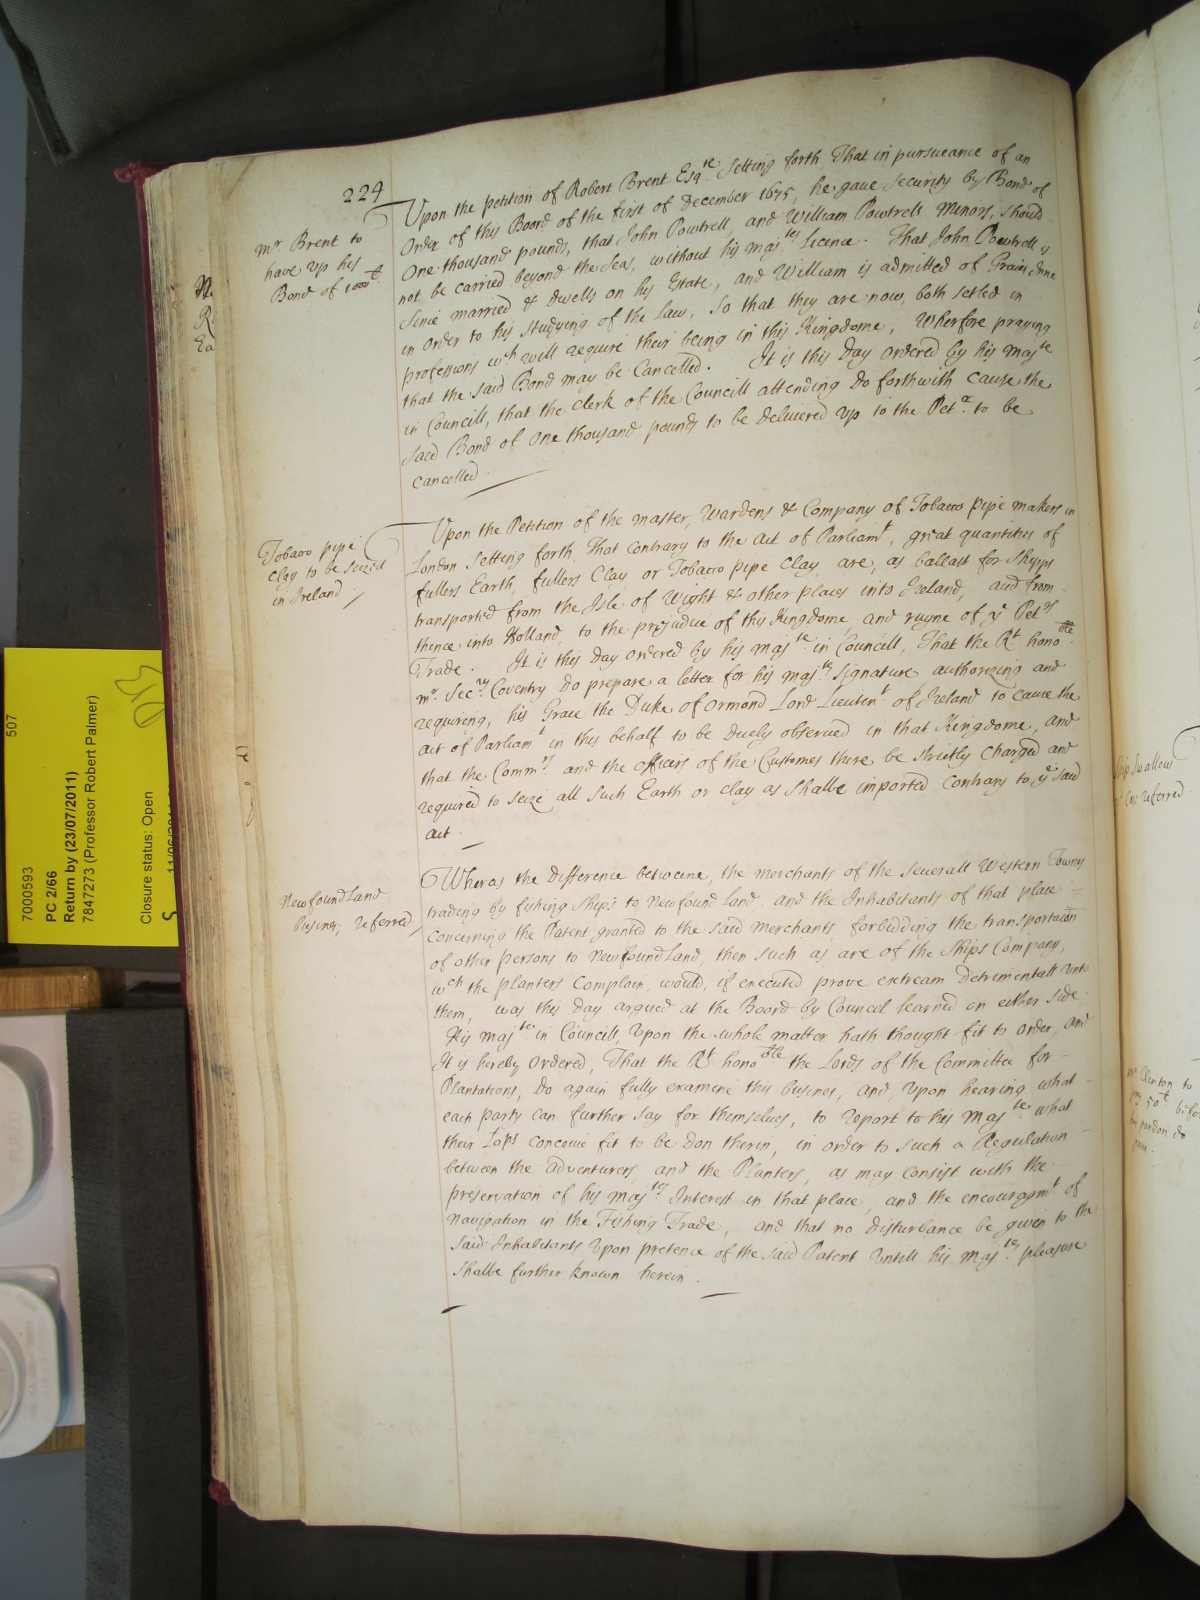 224
mr Brent to
have up his
Bond of 1000£
Upon the petition of Robert Brent Esqre Setting forth, That in pursueance of an
Order of this Board of the first of December 1675, he gave Security by Bond of
One thousand pounds, that John Powtrell, and William Powtrell Minors, should
not be carried beyond the Seas, without his Majtes Licence. That John Powtrell is
since married & dwells on his Estate, and William is admitted of Grais Inne
in order to his studying of the Law, So that they are now both setled in
professions wch will require their being in this Kingdome, Wherfore praying
that the said Bond may be Cancelled. It is this Day ordered by his Majte
in Councill, that the Clerk of the Councill attending do forthwith cause the
said Bond of One thousand pounds to be delivered up to the Petr to be
cancelled.
Tobacco pipe
Clay to be seized
in Ireland
Upon the Petition of the Master, Wardens & Company of Tobacco pipe makers in
London Setting forth, That contrary to the Act of Parliamt, great quantities of
fullers Earth, fullers Clay or Tobacco pipe Clay, are, as ballast for Shipps
transported from the Isle of Wight & other places into Ireland, and from
thence into Holland, to the prejudice of this Kingdome, and ruyne of ye Petrs
Trade. It is this Day Ordered by his Majte in Councill, That the Rt honoble
mr. Secry Coventry do prepare a letter for his Majtes Signature authorizing and
requiring, his Grace the Duke of Ormond Lord Lieutent of Ireland to cause the
Act of Parliamt in this behalf to be duely observed in that Kingdome, and
that the Commrs and the officers of the Customes there be strictly Charged and
required to seize all such Earth or clay as shalbe imported contrary to ye said
Act.
Newfound Land
busines referred
Wheras the difference betweene, the merchants of the severall Western Townes
trading by fishing Ships to Newfound Land, and the Inhabitants of that place
concerning the Patent granted to the said Merchants, forbidding the transportacon
of other persons to Newfound Land, then such as are of the Ships Company,
wch the planters Complain, would, if executed prove extream Detrimentall unto
them, was this day argued at the Board by Councel learned on either side.
His Majte in Councill, upon the whole matter hath thought fit to order, and
It is hereby ordered, That the Rt honoble the Lords of the Committee for
Plantations, Do again fully examine this busines, and, upon hearing what
each party can further say for themselves, to report to his Majte what
their Lops conceive fit to be don therin, in order to such a Regulation
between the adventurers, and the Planters, as may Consist with the
preservation of his Majtes Interest in that place, and the encouragmt of
Navigation in the Fishing Trade, and that no disturbance be given to the
said Inhabitants upon pretence of the said Patent untill his Majtes pleasure
shalbe further known herein.
507
7000593
PC 2/66
Return by (23/07/2011)
7847273 (Professor Robert Palmer)
Closure status: Open
Ship Swallow
Case referred
mr Clenton to
pay 50£ before
his pardon do
pass